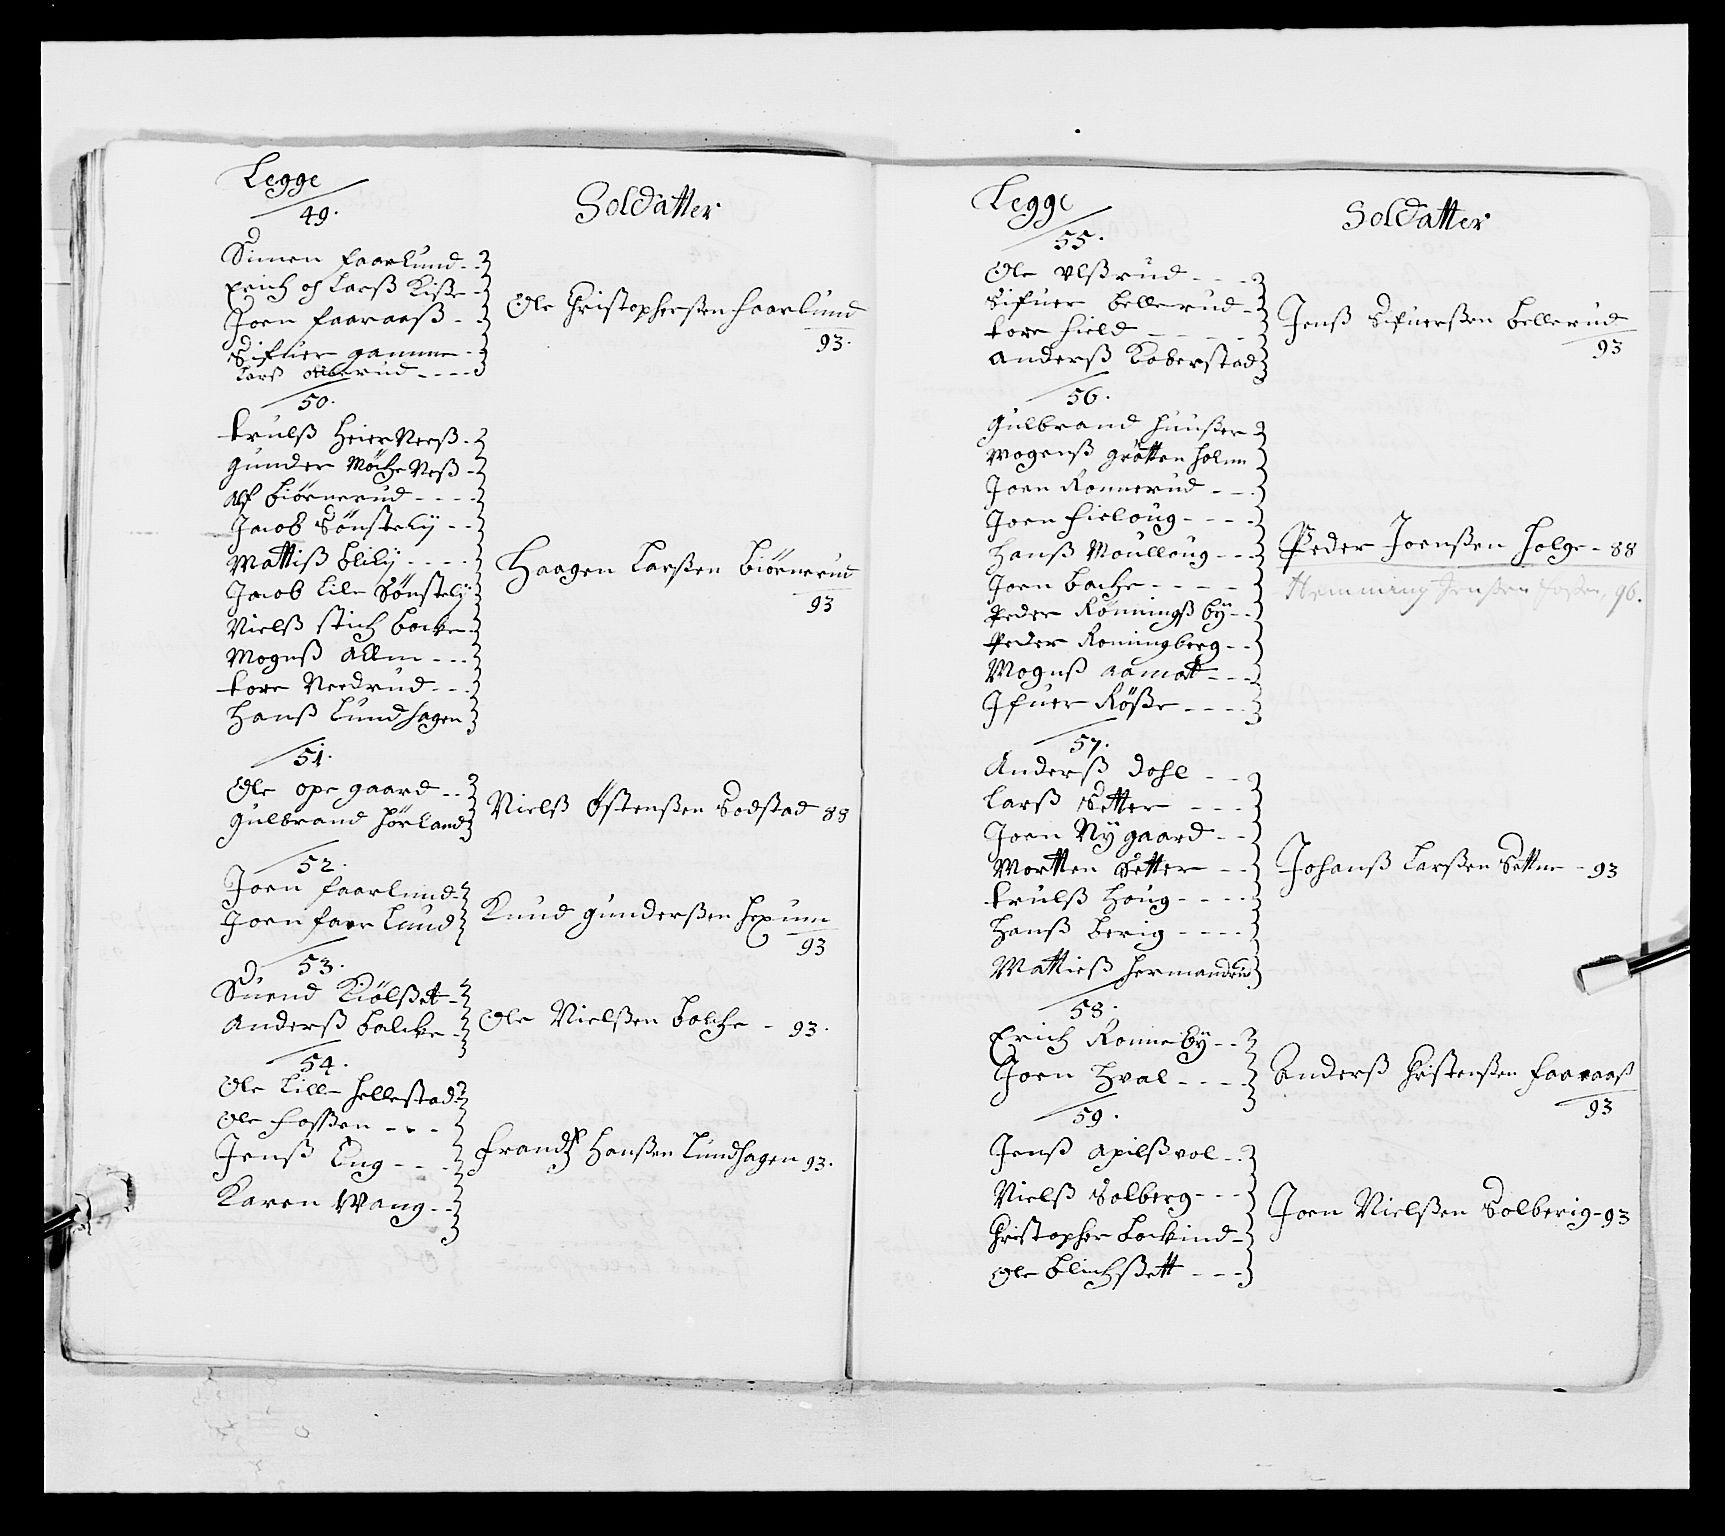 Legge
Soldatter
49.
Simen faarlund
Erich og Larß Kiße
Joen faaraaß
Sifuer gamme
Larß Olberud
Ole Christophersen faarlund
93.
50.
Trulß Heier Neeß
Gunder Möche Neß
Alf Biörnerud
Jacob Sönstelij
Mattiß Blilij
Jacob Lile Sönstelij
Nielß Stich backe
Mogenß Allm
Tore Needrud
Hanß Lundhagen
Haagen Larßen Biörnerud
93
51.
Ole opegaard
Gulbrand hörland
Nielß Östenßen Sodstad 88
52.
Joen faarlund
Joen faarlund
Knud gunderßen hexum
93
53.
Suend Kiölßet
Anderß Balcke
Ole Nielßen Balche - 93.
54.
Ole Lille hellestad
Ole foßßen
Jenß Eng
Karen Wang
Frandtz Hanßen Lundhagen 93.
Legge
Soldatter
55.
Ole Ulßrud
Sifuer Bellerud
Tore hield
Anderß Koberstad
Jenß Sifuerßen Bellerud
93
56.
Gulbrand huußer
Mogenß gröttenholm
Joen Ronnerud
Joen fieloug
Hanß Moulloug
Joen Bache
Peder Rönningßbÿ
Peder Roningberg
Mogenß aamott
Ifuer Röße
Peder Joenßen holge - 88
Hemming Jenßen 96.
57.
Anderß Dohl
Larß Setter
Joen Nÿgaard
Mortten Setter
Trulß Houg
Hanß Berig
Mattieß hermandrud
Johanß Larßen Setter - 93
58.
Erich Ronnebÿ
Joen Hval
Anderß Christenßen faaraaß
93
59.
Jenß Apilßvol
Nielß Solberg
Christopher Backind
Ole Blichßett
Joen Nielßen Solberig - 93